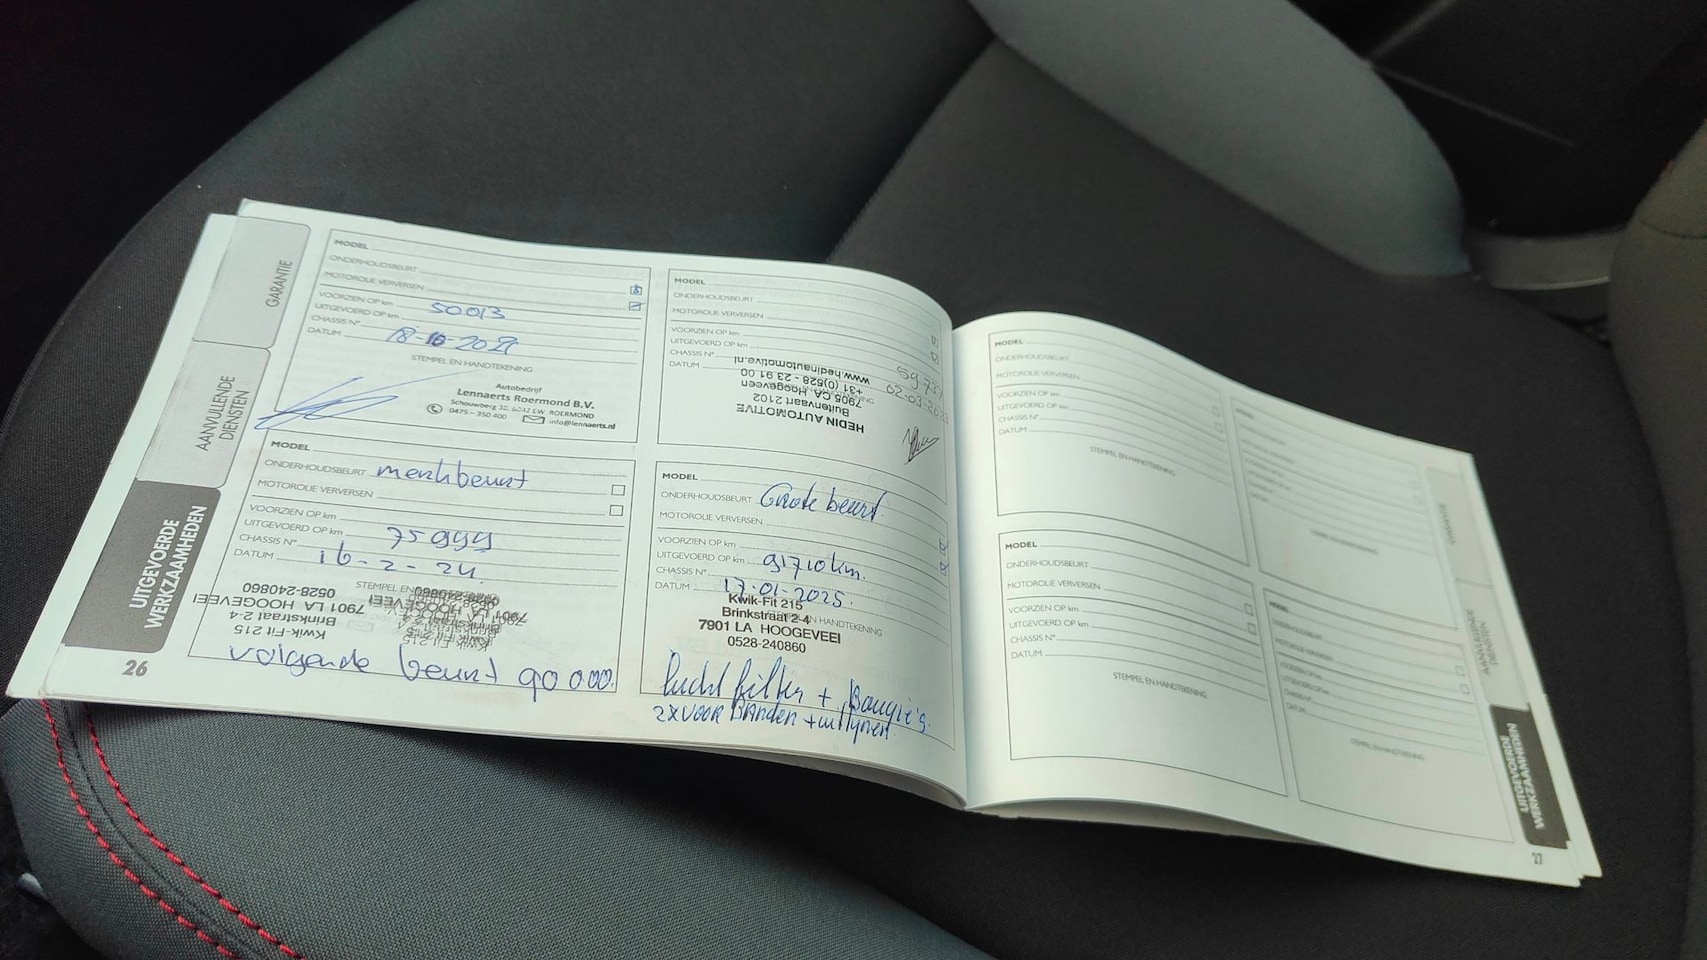 GARANTIE
AANVULLENDE
DIENSTEN
UITGEVOERDE
WERKZAAMHEDEN
26
MODEL
ONDERHOUDSBEURT
MOTOROLIE VERVERSEN
VOORZIEN OP km
UITGEVOERD OP km 50013
CHASSIS N°
DATUM
STEMPEL EN HANDTEKENING
Autobedrijf
Lennaerts Roermond B.V.
Schouwberg 30, 6042 LW ROERMOND
0475 - 350 400 info@lennaerts.nl
MODEL
ONDERHOUDSBEURT
MOTOROLIE VERVERSEN
VOORZIEN OP km
UITGEVOERD OP km
CHASSIS N°
DATUM
HEDIN AUTOMOTIVE
Buitenvaart 2102
7905 CA Hoogeveen
+31 (0)528 - 23 91 00
www.hedinautomotive.nl
MODEL
ONDERHOUDSBEURT
MOTOROLIE VERVERSEN
VOORZIEN OP km
UITGEVOERD OP km 75999
CHASSIS N°
DATUM 16-2-24
STEMPEL EN
Kwik-Fit 215
Brinkstraat 2-4
7901 LA HOOGEVEEI
0528-240860
volgende beurt 90 000.
MODEL
ONDERHOUDSBEURT Grote beurt
MOTOROLIE VERVERSEN
VOORZIEN OP km
UITGEVOERD OP km 91710 km.
CHASSIS N°
DATUM 17-01-2025.
Kwik-Fit 215
Brinkstraat 2-4
EN HANDTEKENING
7901 LA HOOGEVEEI
0528-240860
lucht filter + Bougie's
2x VOOR BANDEN + uitlijnen
MODEL
ONDERHOUDSBEURT
MOTOROLIE VERVERSEN
VOORZIEN OP km
UITGEVOERD OP km
CHASSIS N°
DATUM
STEMPEL EN HANDTEKENING
MODEL
ONDERHOUDSBEURT
MOTOROLIE VERVERSEN
VOORZIEN OP km
UITGEVOERD OP km
CHASSIS N°
DATUM
STEMPEL EN HANDTEKENING
UITGEVOERDE
WERKZAAMHEDEN
27